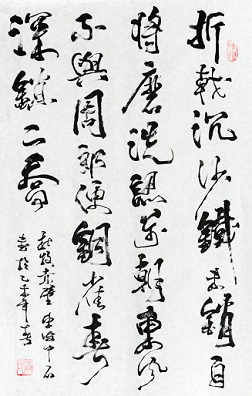 折戟沉沙鐵未銷自
將磨洗認前朝東風
不與周郎便銅雀春
深鎖二喬
赤壁
乙未年